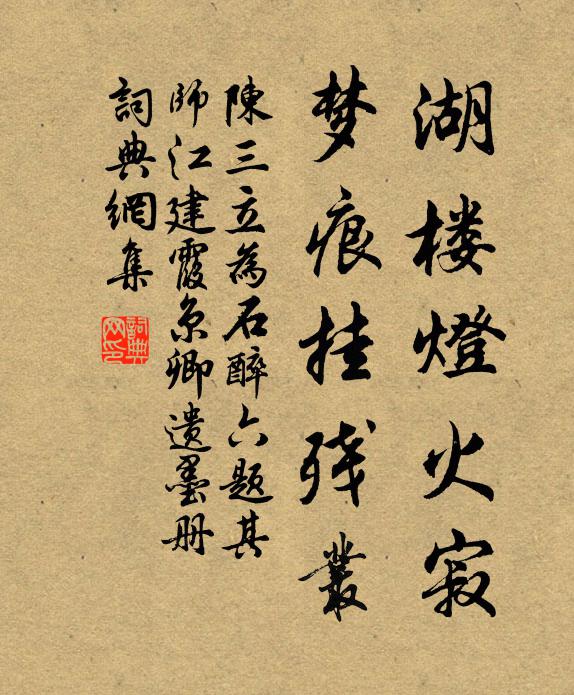 湖楼燈火寂
梦痕挂残叢
陳三立為石醉六题其
師江建霞京卿遗墨册
詞典網集
詞典
网印